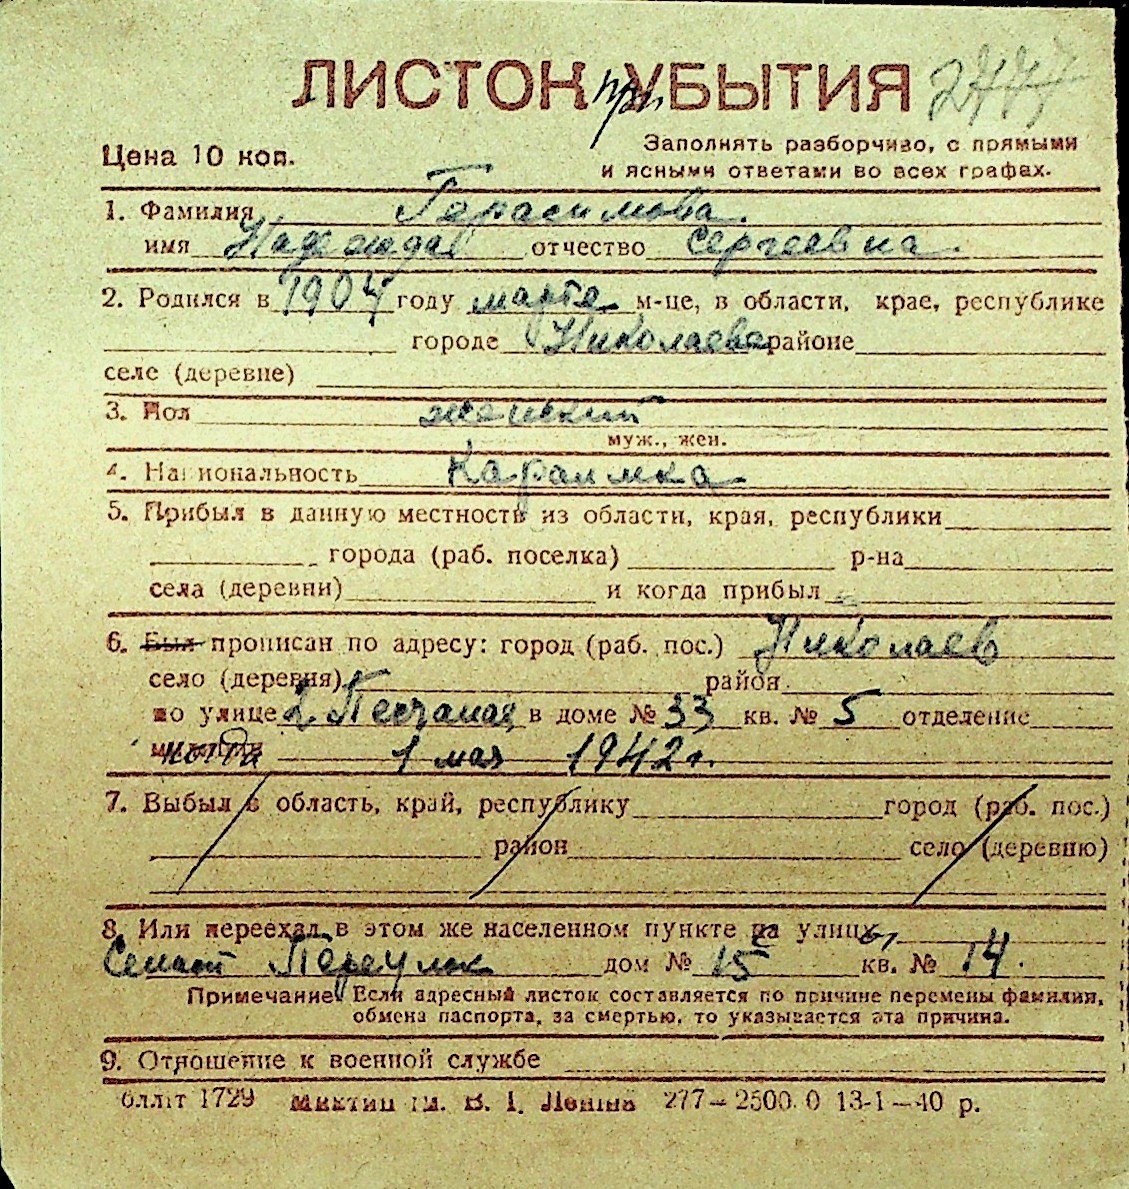 ЛИСТОК при УБЫТИЯ
Цена 10 коп.
Заполнять разборчиво, с прямыми
и ясными ответами во всех графах.
1. Фамилия Герасимова
имя Надежда отчество Сергеевна
2. Родился в 1904 году марте м-це, в области, крае, республике
городе Николаеве районе
селе (деревне)
3. Пол женский
муж., жен.
4. Национальность Караимка
5. Прибыл в данную местность из области, края, республики
города (раб. поселка) р-на
села (деревни) и когда прибыл
6. Был прописан по адресу: город (раб. пос.) Николаев
село (деревня) район
по улице 2 Песчаная в доме № 33 кв. № 5 отделение
милиции когда 1 мая 1942 г.
7. Выбыл в область, край, республику город (раб. пос.)
район село (деревню)
8. Или переехал в этом же населенном пункте на улицу
Сенат Переулок дом № 15 кв. № 14.
Примечание. Если адресный листок составляется по причине перемены фамилии,
обмена паспорта, за смертью, то указывается эта причина.
9. Отношение к военной службе
блліт 1729 В. І. Леніна 277—2500.0 13-1—40 р.